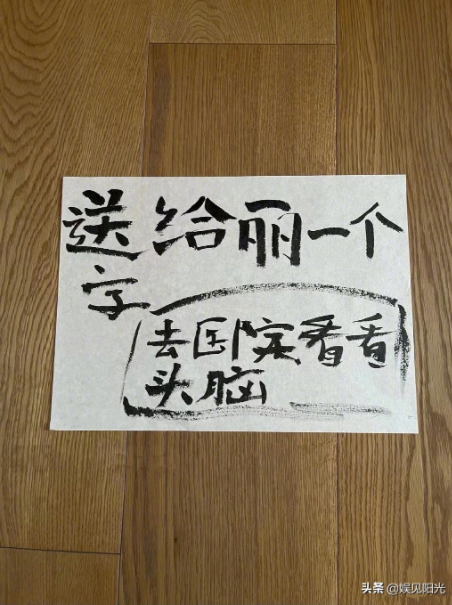 送给丽一个
字
去医院看看
头脑
头条 @娱见阳光